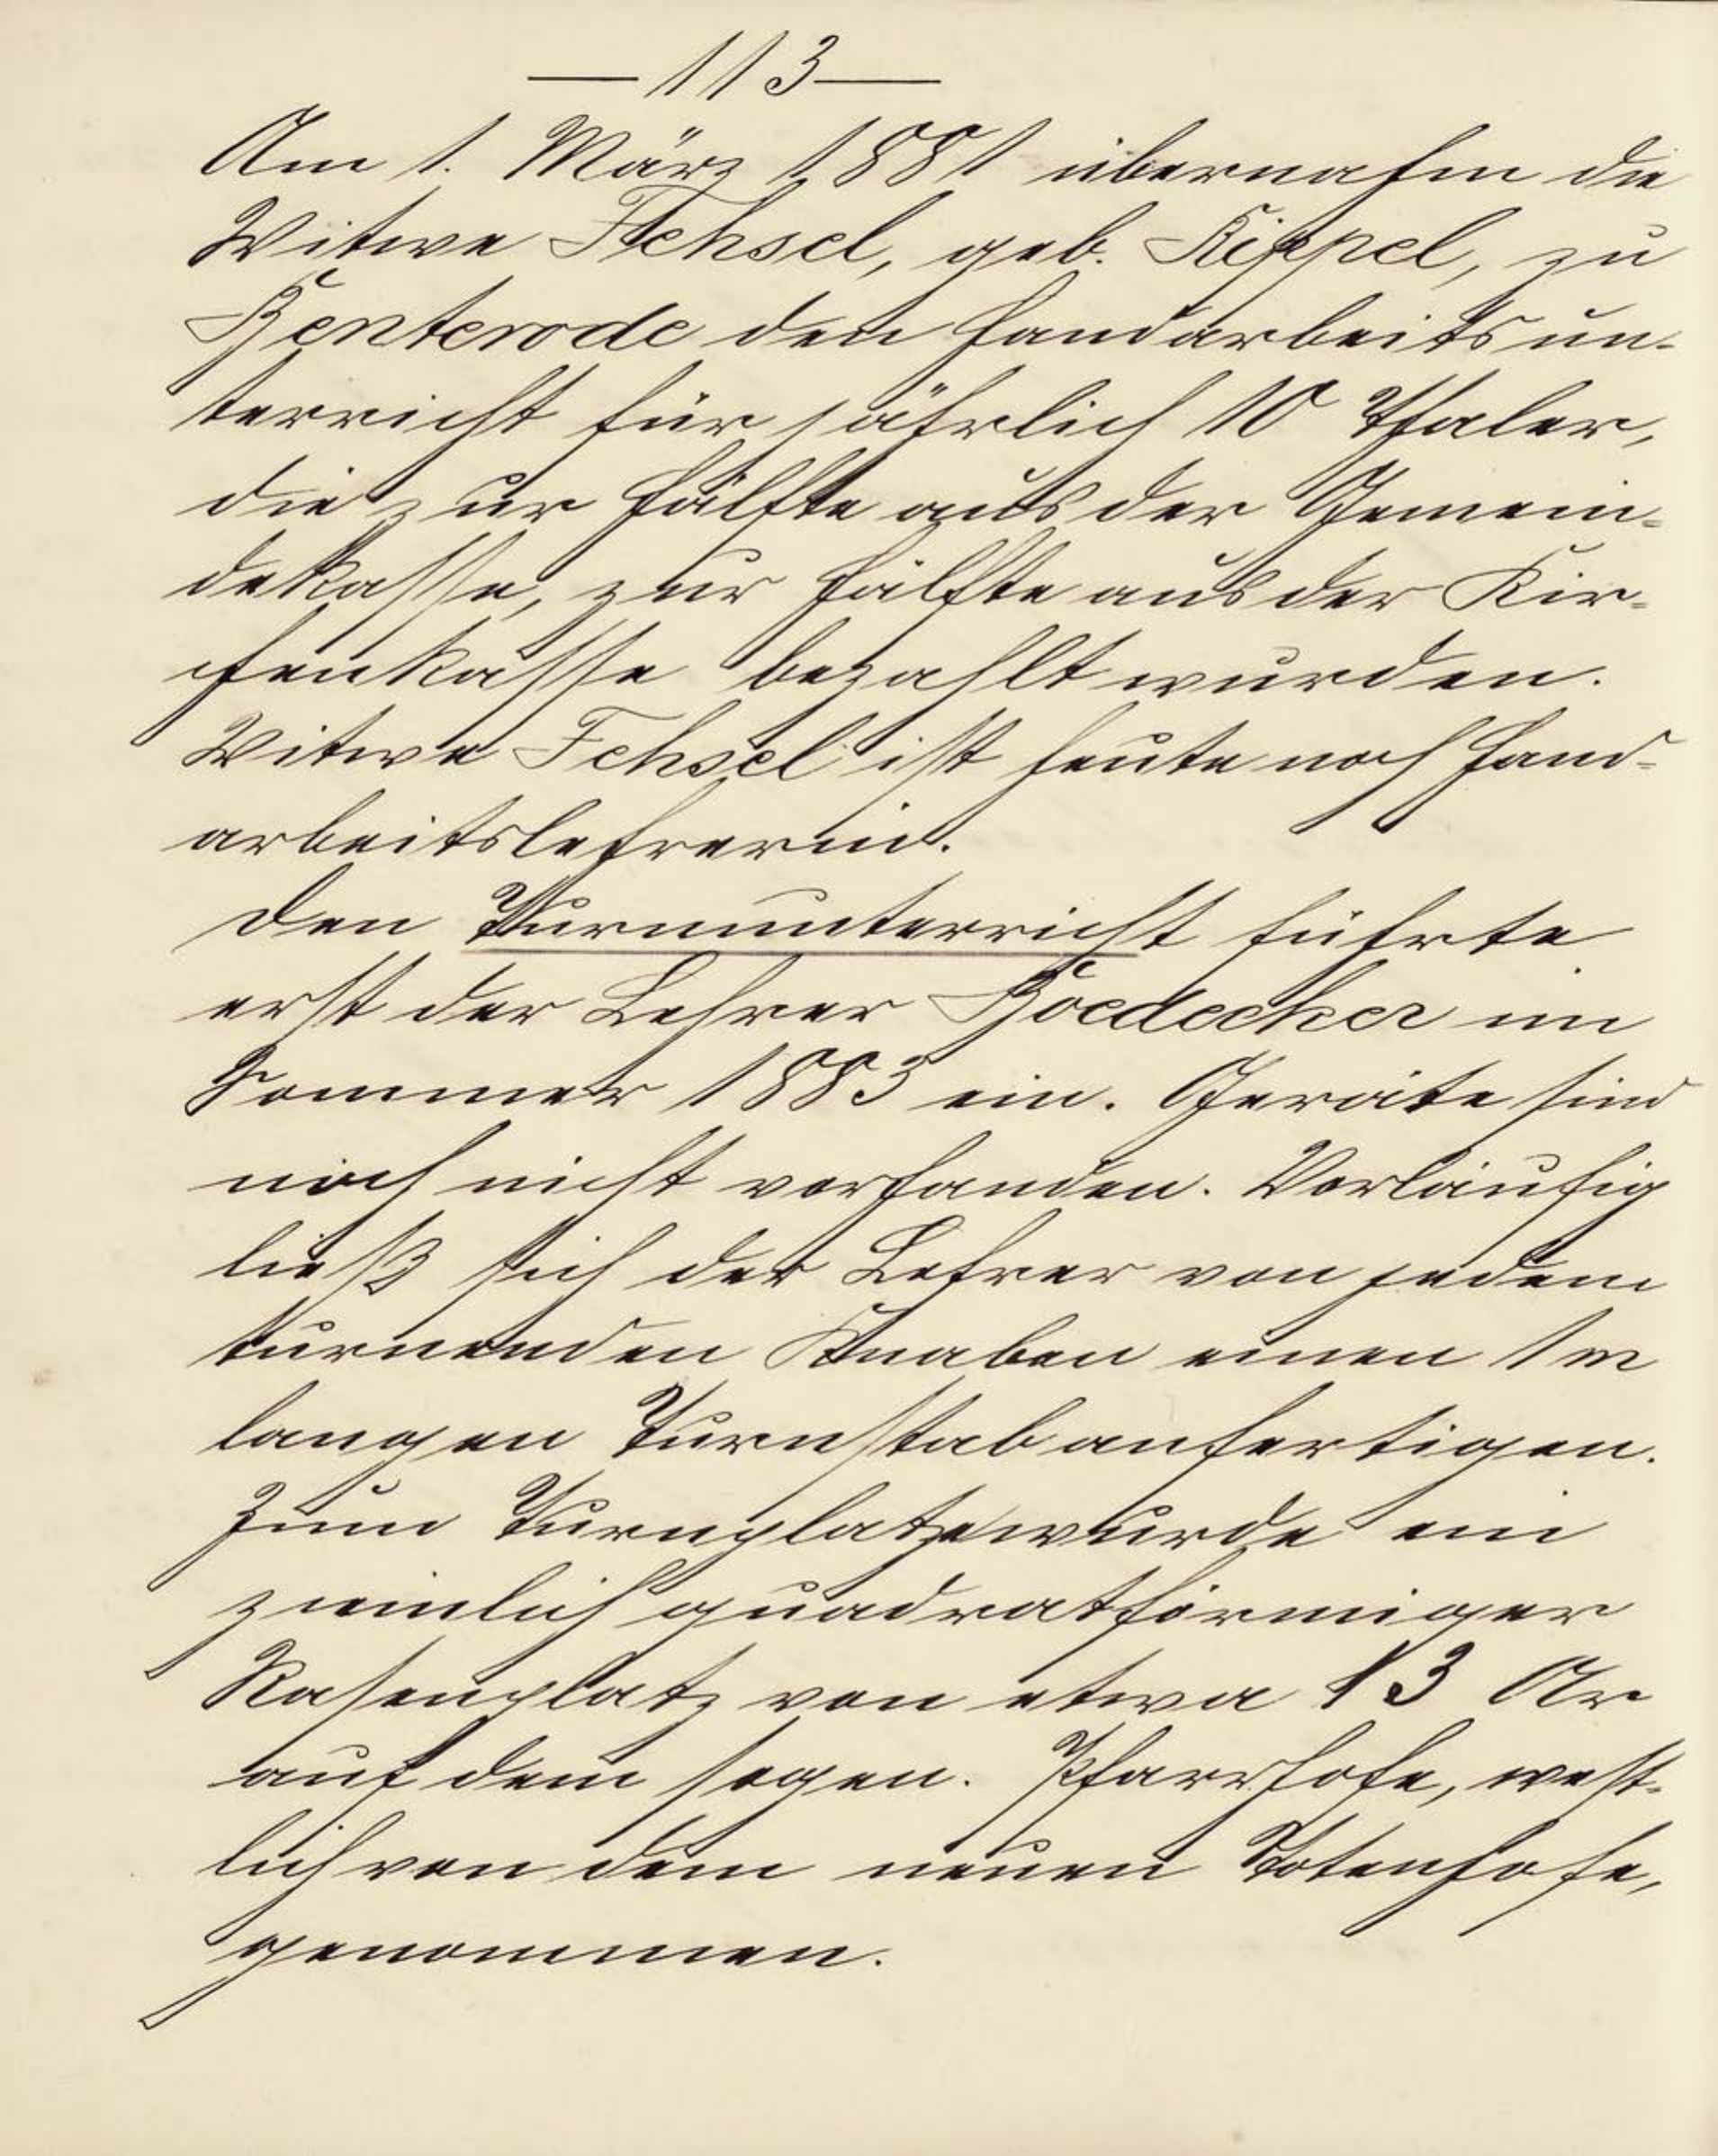 — 113 —
Am 1. März 1881 übernahm die
Witwe Fehsel, geb. Kippel, zu
Henterode den Handarbeitsun-
terricht für jährlich 10 Thaler,
die zur Hälfte aus der Gemein-
dekasse, zur Hälfte aus der Kir-
chenkasse bezahlt wurden.
Witwe Fehsel ist heute noch Hand-
arbeitslehrerin.
Den Turnunterricht führte
erst der Lehrer Goedecker im
Sommer 1883 ein. Geräte sind
noch nicht vorhanden. Vorläufig
ließ sich der Lehrer von jedem
turnenden Knaben einen 1 m
langen Turnstab anfertigen.
Zum Turnplatze wurde ein
ziemlich quadratförmiger
Rasenplatz von etwa 13 Ar
auf dem sogen. Pfarrhofe, west-
lich von dem neuen Totenhofe,
genommen.